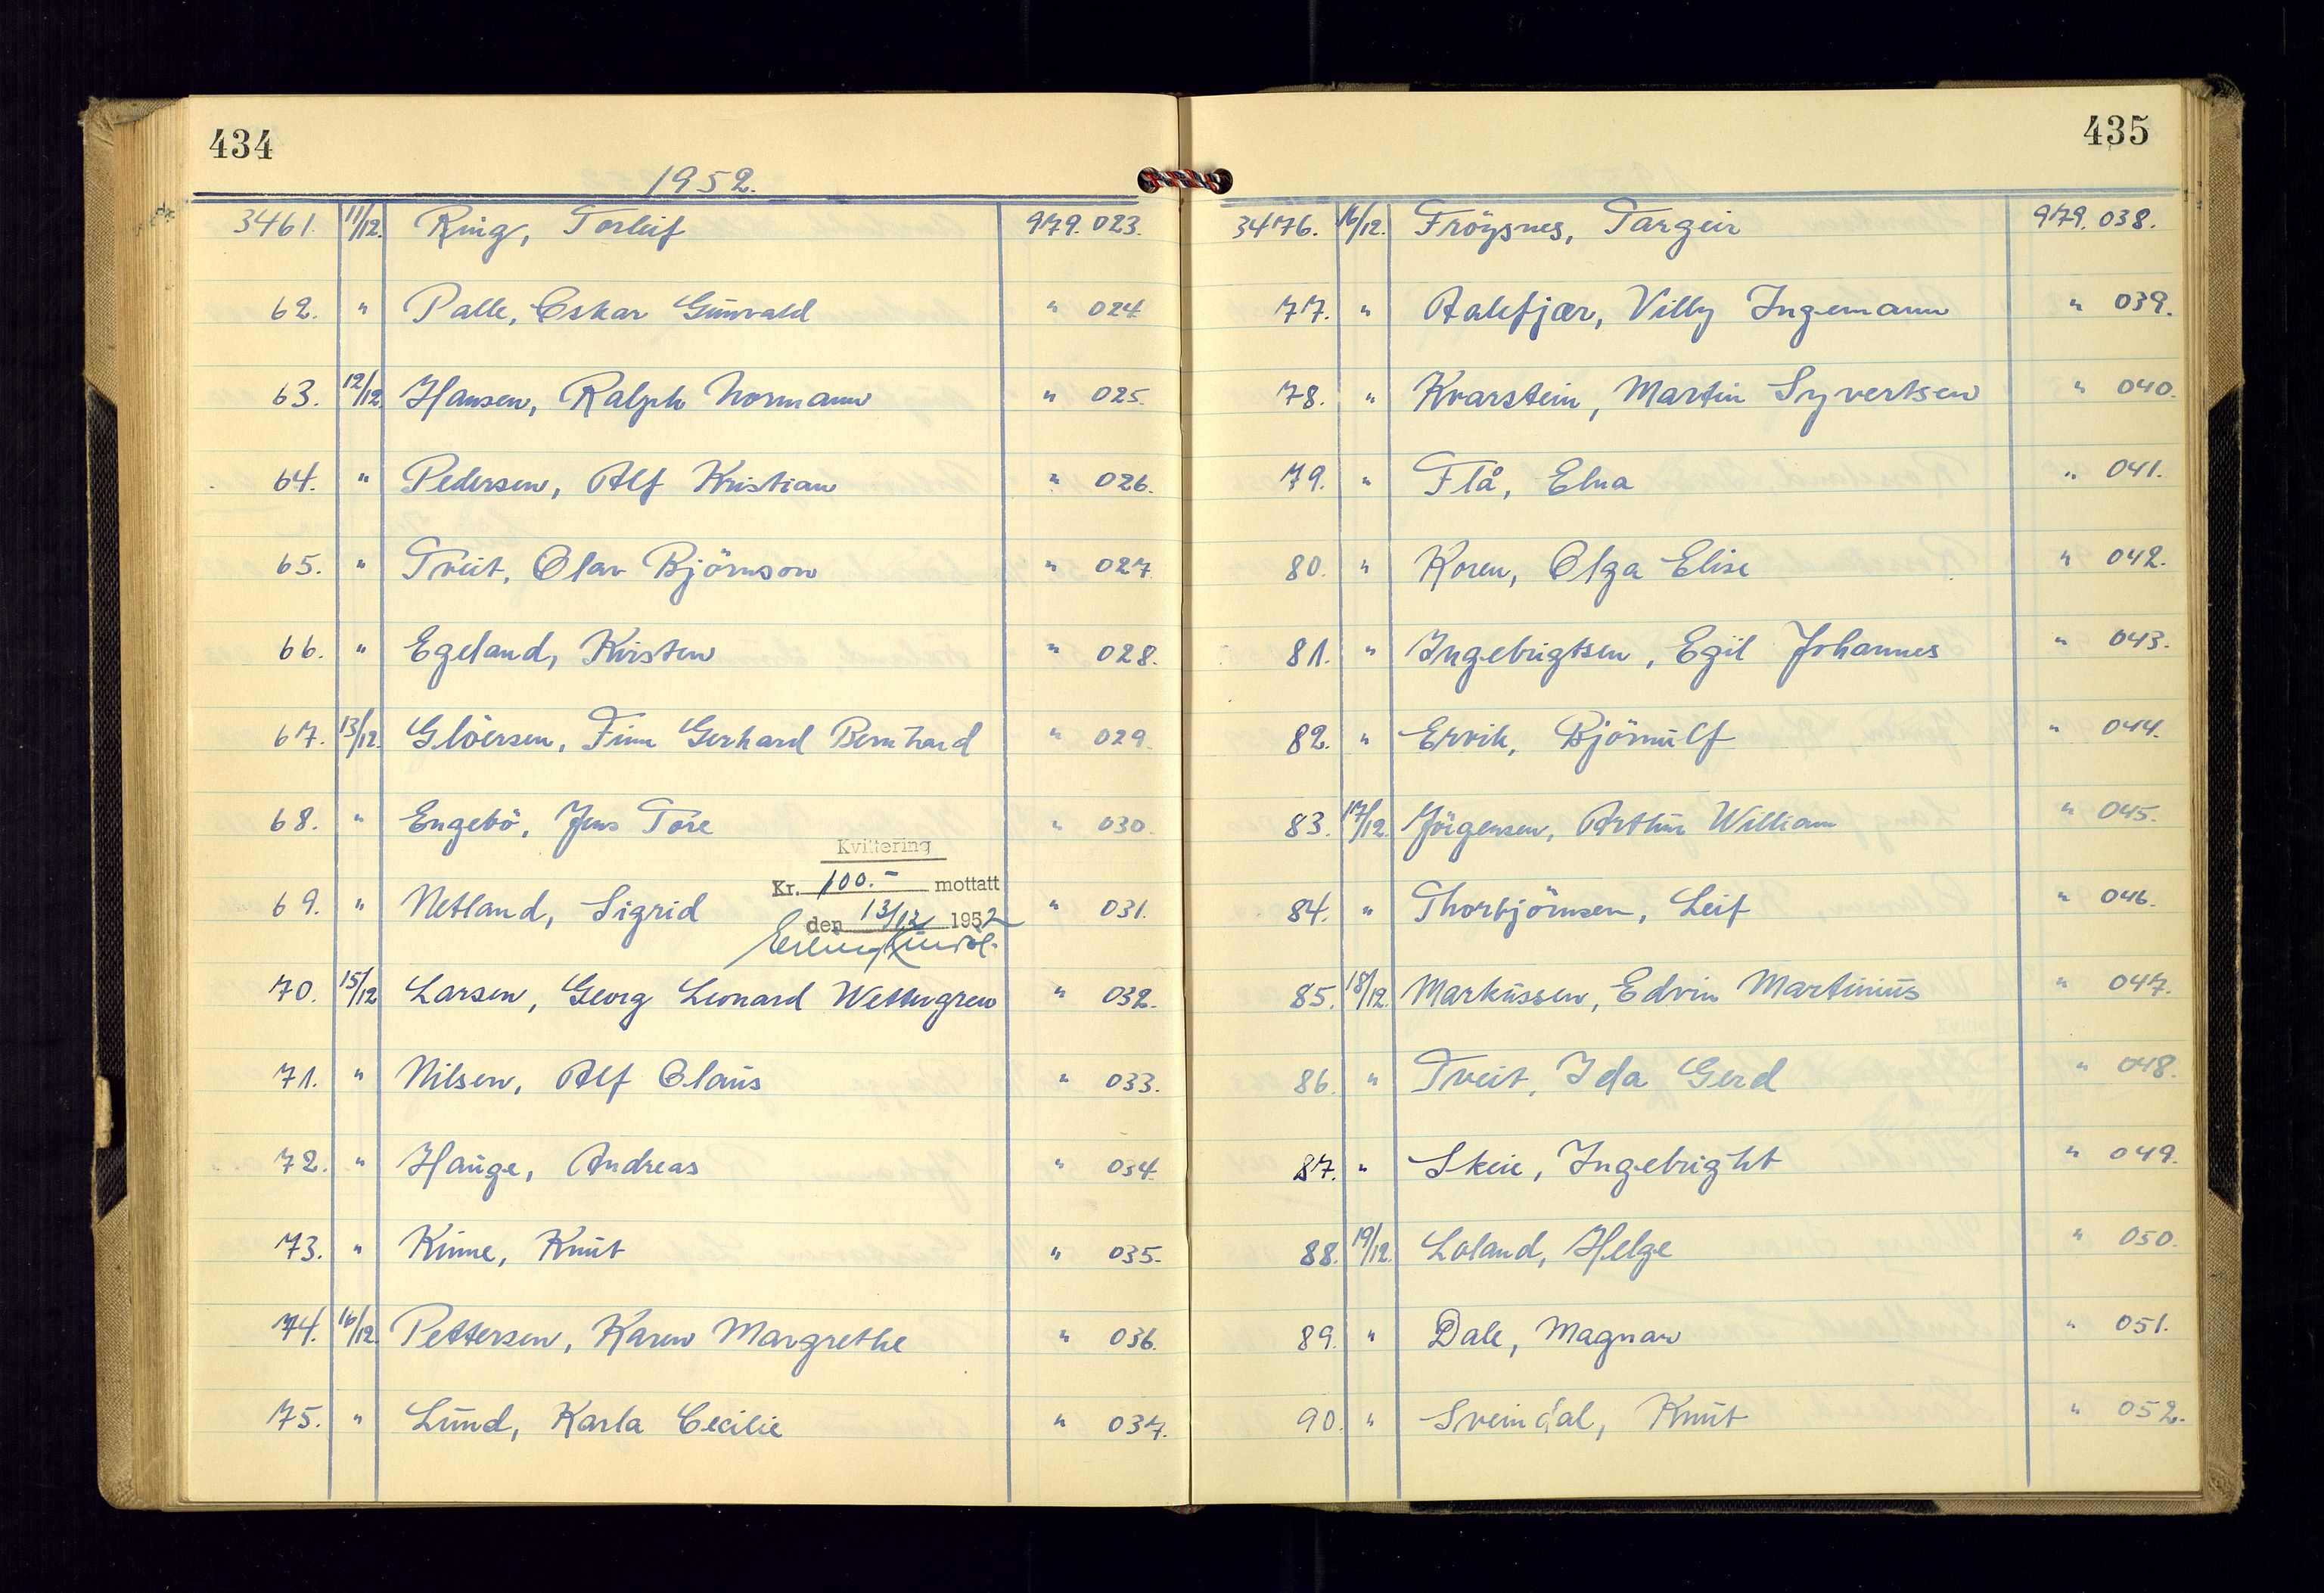 434
1952.
3461. 11/12. Ring, Torleif 979.023.
62. " Palle, Oskar Gunvald " 024.
63. 12/12. Hansen, Ralph Normann " 025.
64. " Pedersen, Alf Kristian " 026.
65. " Tveit, Olav Björnson " 027.
66. " Egeland, Kirsten " 028.
67. 13/12. Glöersen, Finn Gerhard Bernhard " 029.
68. " Engebö, Jens Tore " 030.
Kvittering
Kr. 100.- mottatt
69. " Netland, Sigrid " 031.
den 13/12 1952
70. 15/12 Larsen, Georg Leonard Wettergren " 032.
71. " Nilsen, Alf Olaus " 033.
72. " Hauge, Andreas " 034.
73. " Kinne, Knut " 035.
74. 16/12. Pettersen, Karen Margrethe " 036.
75. " Lund, Karla Cecilie " 037.
435
3476. 16/12. Fröysnes, Targeir 979.038.
77. " Aalefjær, Villy Ingemann " 039.
78. " Kvarstein, Martin Syvertsen " 040.
79. " Flå, Elna " 041.
80. " Koren, Olga Elise " 042.
81. " Ingebrigtsen, Egil Johannes " 043.
82. " Ervik, Björnulf " 044.
83. 17/12. Jörgensen, Arthur William " 045.
84. " Thorbjörnsen, Leif " 046.
85. 18/12. Markussen, Edvin Martinius " 047.
86. " Tveit, Ida Gerd " 048.
87. " Skeie, Ingebright " 049.
88. 19/12. Loland, Helge " 050.
89. " Dale, Magnar " 051.
90. " Sveindal, Knut " 052.